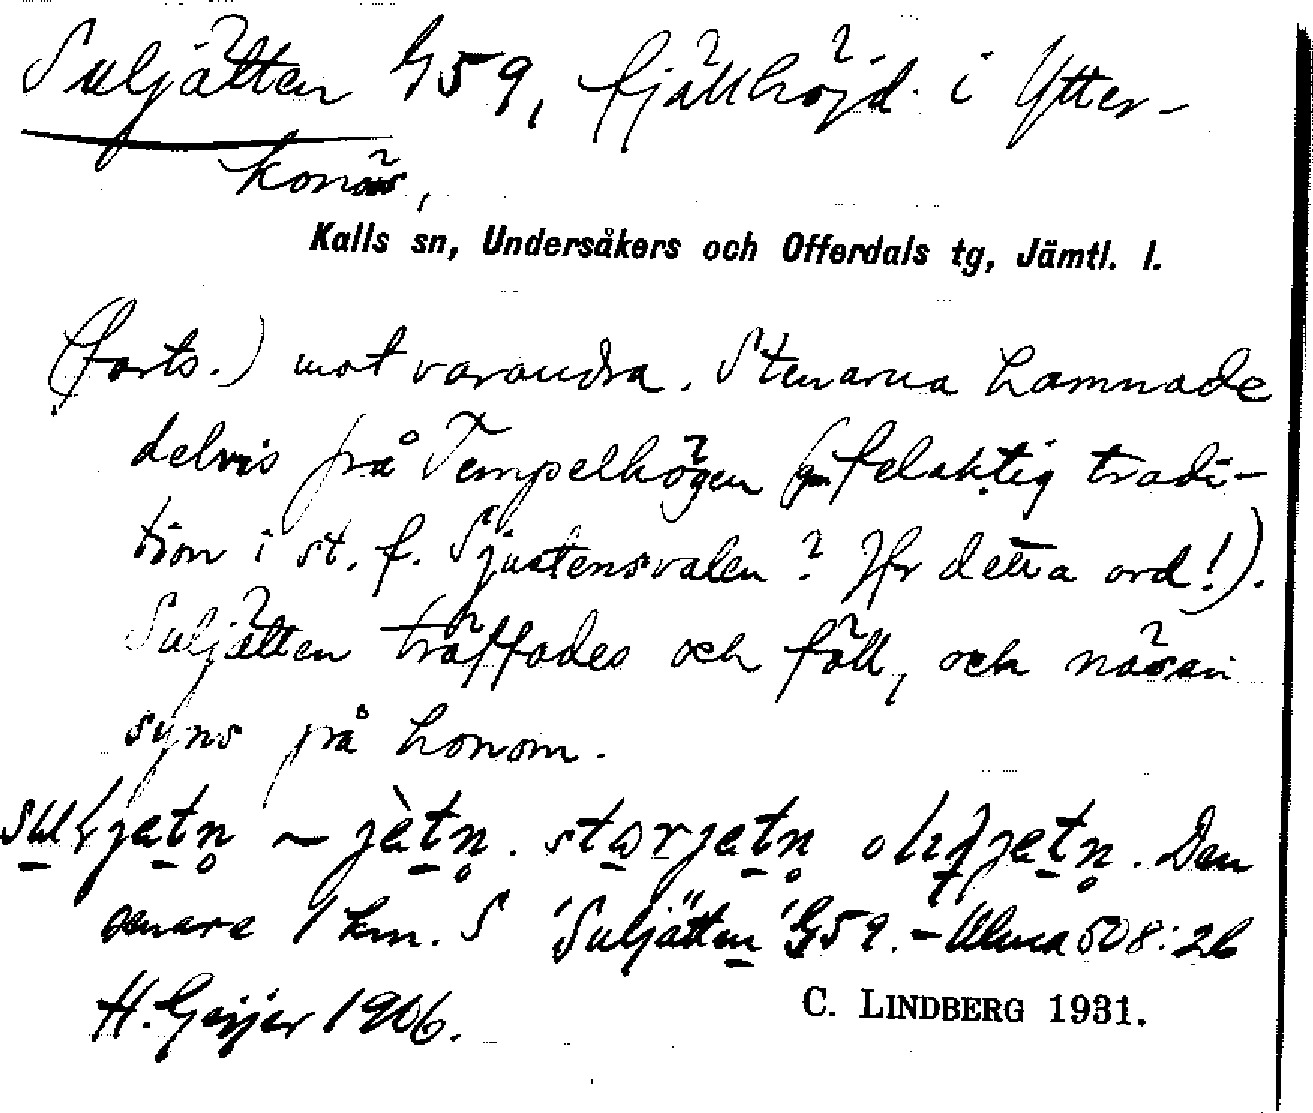 Suljätten G59, fjällhöjd i Ytter-
konäs,
Kalls sn, Undersåkers och Offerdals tg, Jämtl. l.
(forts.) mot varandra. Stenarna hamnade
delvis på Tempelhögen felaktig tradi-
tion i st. f. Sjustensvalen? Jfr detta ord!).
Suljätten träffades och föll, och näsan
syns på honom.
~ jètn. storjetn Den
senare 1 km. S Suljätten G59. - Ulma 508:26
H. Geijer 1906.
C. LINDBERG 1931.